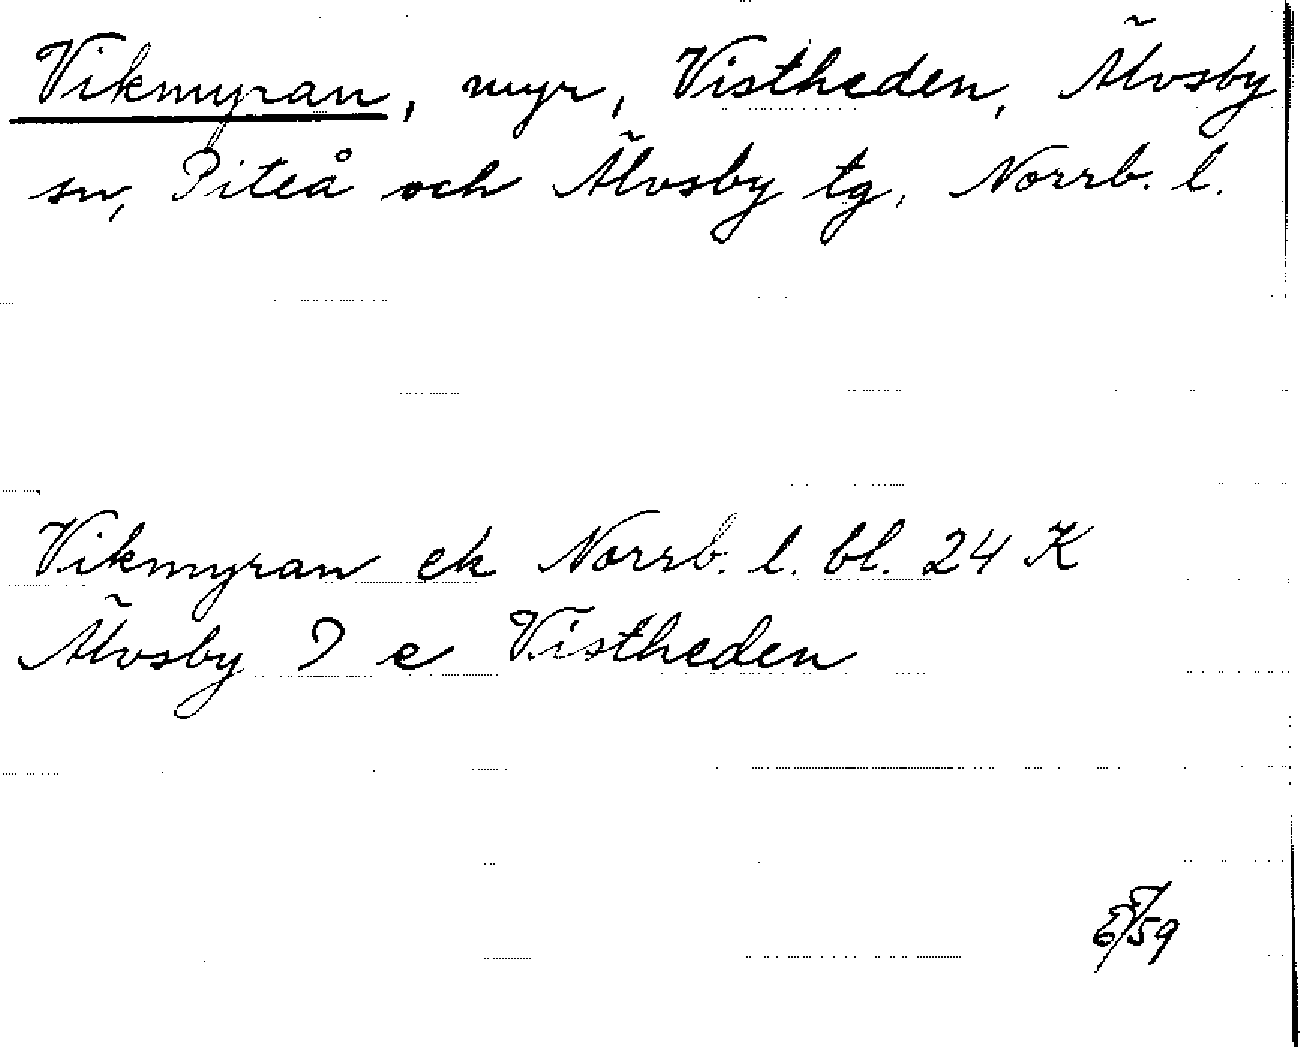 Vikmyran, myr, Vistheden, Älvsby
sn, Piteå och Älvsby tg, Norrb. l.
Vikmyran ek Norrb. l. bl. 24 K
Älvsby 7 e Vistheden